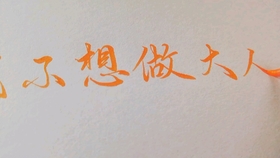 不想做大人